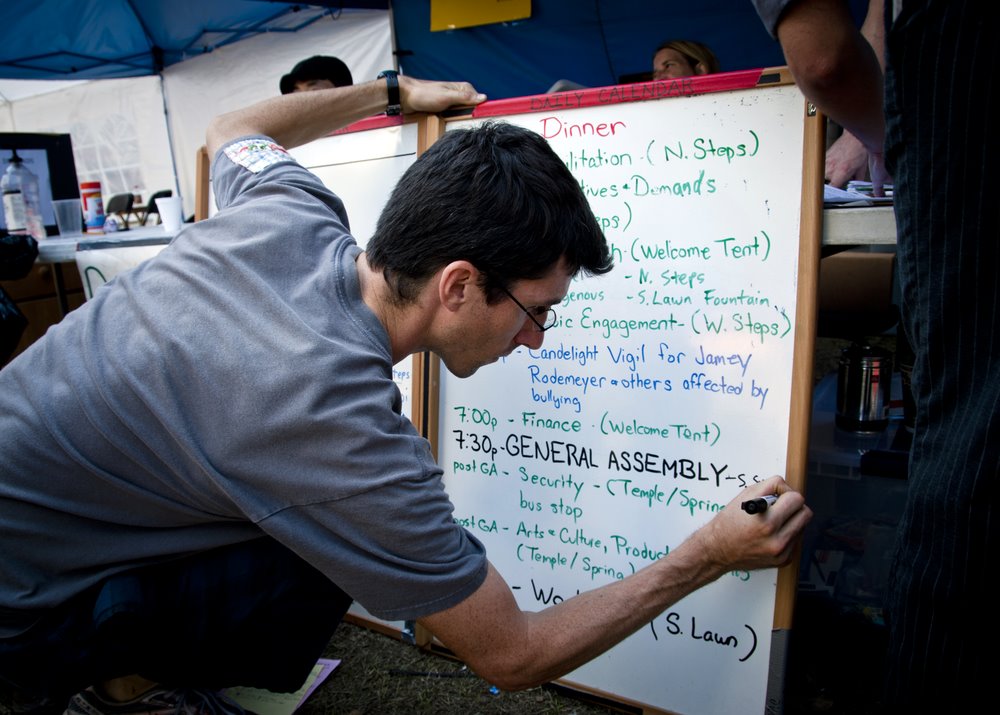 DAILY CALENDAR
Dinner
(N. Steps)
Demands
(Welcome Tent)
- N. Steps
- S. Lawn Fountain
Engagement - (W. Steps)
- Candelight Vigil for Jamey
Rodemeyer & others affected by
bullying
7:00p - Finance - (Welcome Tent)
7:30p - GENERAL ASSEMBLY - S. S
post GA - Security - (Temple/Spring
bus stop
post GA - Arts & Culture,
(Temple/Spring)
(S. Lawn)